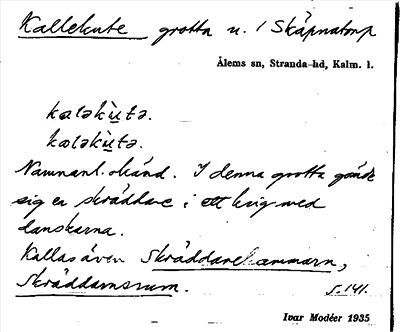 Kallekute grotta n. / Skäpnatorp
Ålems sn, Stranda hd, Kalm. l.
kaləkùtə.
kaləkùtə.
Namnanl. okänd. I denna grotta gömde
sig en skräddare i ett krig med
danskarna.
Kallas även Skräddarekammarn,
Skräddarnsrum. s. 141.
Ivar Modéer 1935